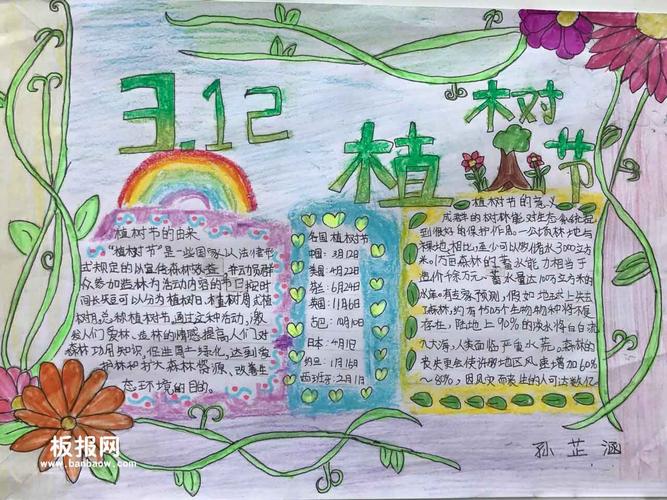 3.12
植树节
植树节的由来
"植树节"是一些国家以法律形
式规定的以宣传森林效益,并动员群
众参加造林为活动内容的节日按时
间长短可以分为植树日、植树周或植
树月,总称植树节。通过这种活动,激
发人们爱林、造林的情感提高人们对
森林功用知识,促进国土绿化,达到爱
护林和扩大森林资源、改善生
态环境的目的。
各国植树节
中国:3月12日
美国:4月22日
6月24日
英国:11月6日
古巴:10月10日
日本:4月1日
约旦:1月16日
西班牙:2月1日
植树节的意义
成群的树林能对生态系统起
到很好的保护作用。一公顷林地与
裸地相比,至少可以多储水3000立方
米。1万亩森林的蓄水能力相当于
蓄水量达100万立方米的
水库。有专家预测,假如地球上失去
森林,约有450万个生物物种将不复
存在,陆地上90%的淡水将白白流
入大海,人类面临严重水荒。森林的
丧失更会使许多地区风速增加60%
~80%,因风灾而丧生的人可达数亿
孙芷涵
板报网
www.banbaow.com